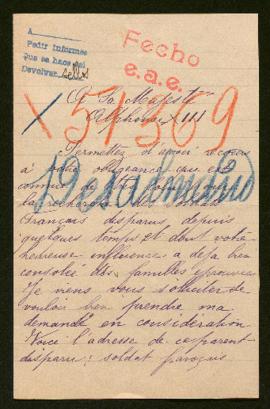 A
Pedir informes
que se hace así
Devolver sellos
Fecho
e.a.e.
A Sa Majesté
Alphonse XIII
X 51369
Permettez d'avoir recours
à votre obligeance
connue de
la recherche
Français disparus depuis
quelques temps et dont votre
heureuse influence a déjà bien
consolé des familles
Je viens vous solliciter de
vouloir bien prendre ma
demande en considération
Voici l'adresse de ce parent
disparu : soldat français